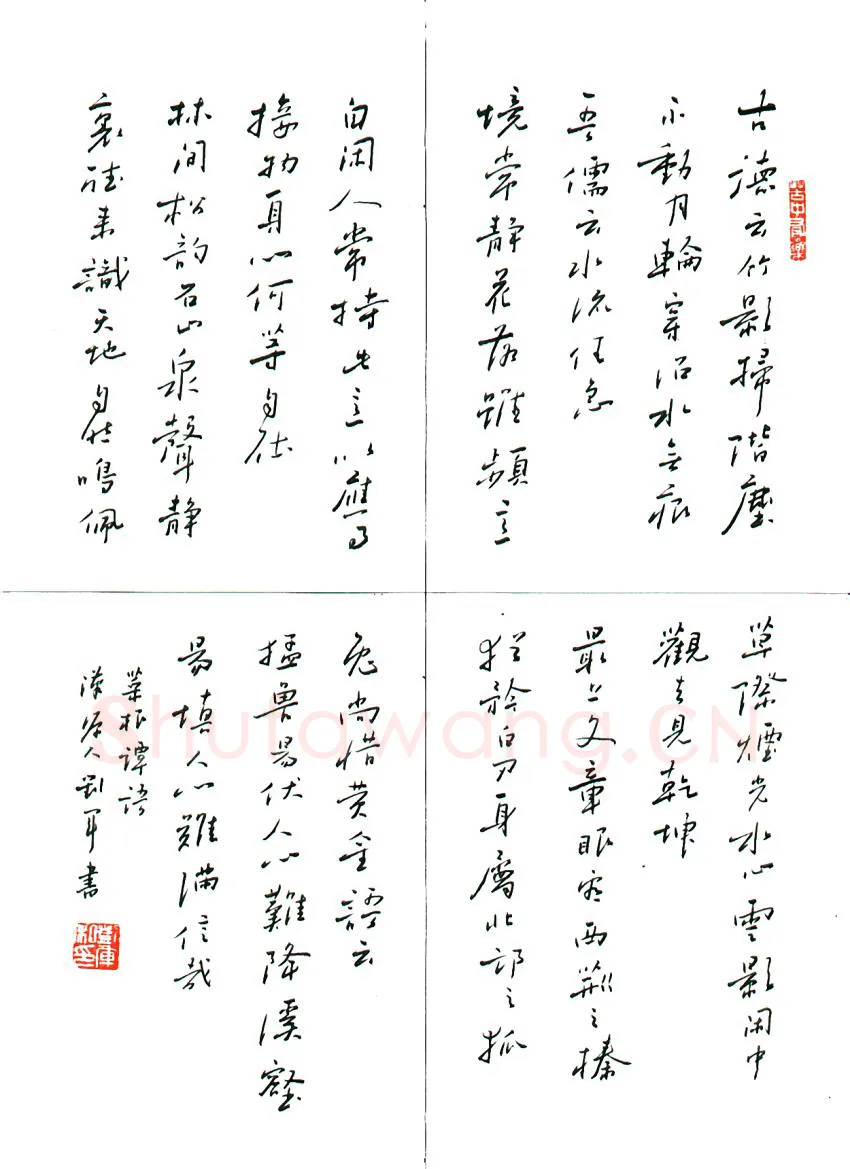 古德云竹影掃階塵
不動月輪穿沼水無痕
吾儒云水流任急
境常静花落雖頻意
自闲人常持此意以應事
接物身心何等自在
林间松韵石山泉聲静
裏聴来識天地自然鳴佩
草際煙光水心雲影闲中
觀去見乾坤
最上文章眼看西荆之榛
犹矜白刃身屬北邙之狐
兔尚惜黄金語云
猛兽易伏人心難降溪壑
易填人心難满信哉
菜根譚語
人劉军書
Shufawang.CN